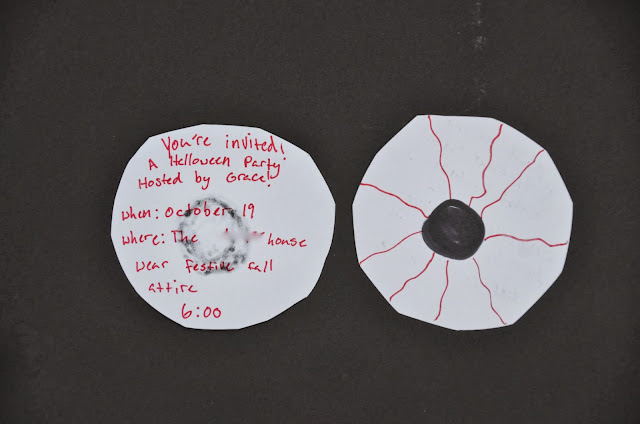 You're invited!
A Helloween Party!
Hosted by Grace!
when: october 19
where: The house
wear festive fall
attire
6:00